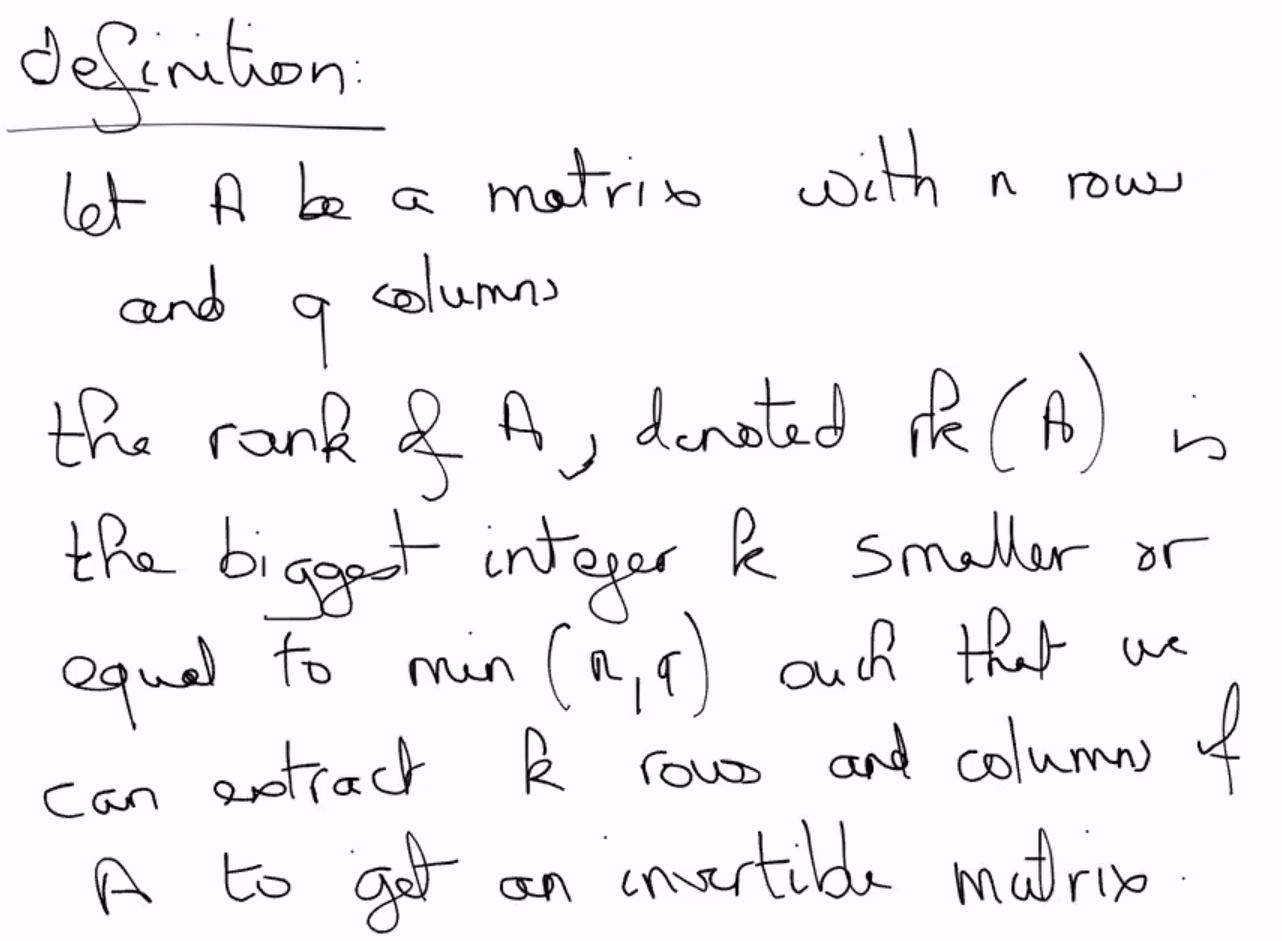 definition:
let A be a matrix with n rows
and q columns
the rank of A, denoted rk(A) is
the biggest integer k smaller or
equal to min(n,q) such that we
can extract k rows and columns of
A to get an invertible matrix.